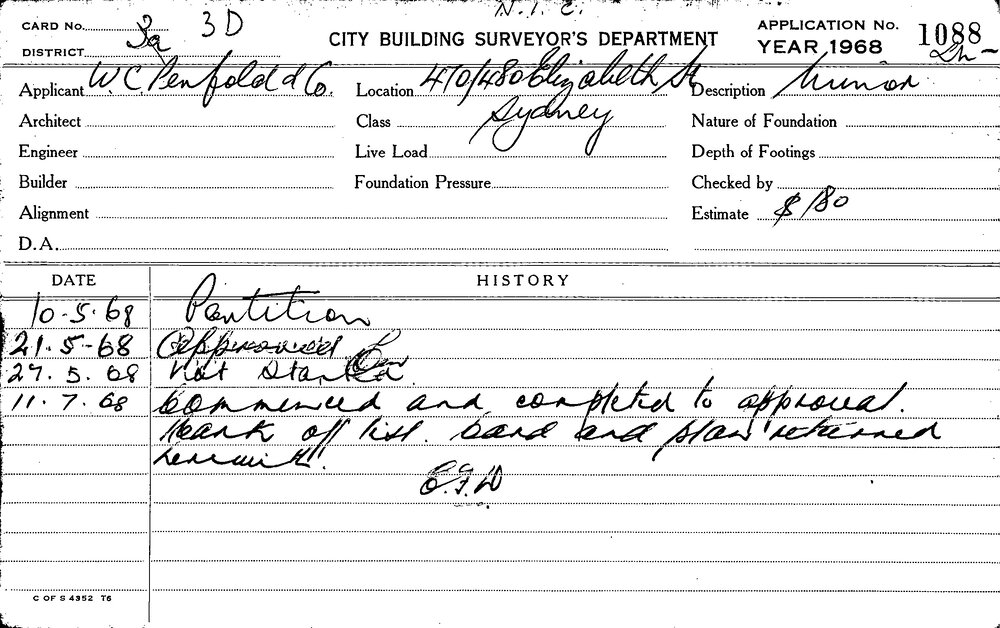 N.I.C.
CARD No. 3a 3D
CITY BUILDING SURVEYOR'S DEPARTMENT
APPLICATION No. 1088
DISTRICT
YEAR 1968
Applicant W.C. Penfold & Co. Location 470/480 Elizabeth St Description Minor
Architect Class Sydney Nature of Foundation
Engineer Live Load Depth of Footings
Builder Foundation Pressure Checked by
Alignment Estimate $180
D.A.
DATE HISTORY
10-5-68 Partition
21-5-68 Approved
27.5.68 Not Started
11.7.68 Commenced and completed to approval.
Mark off list. Card and plan returned
herewith.
C OF S 4352 T6